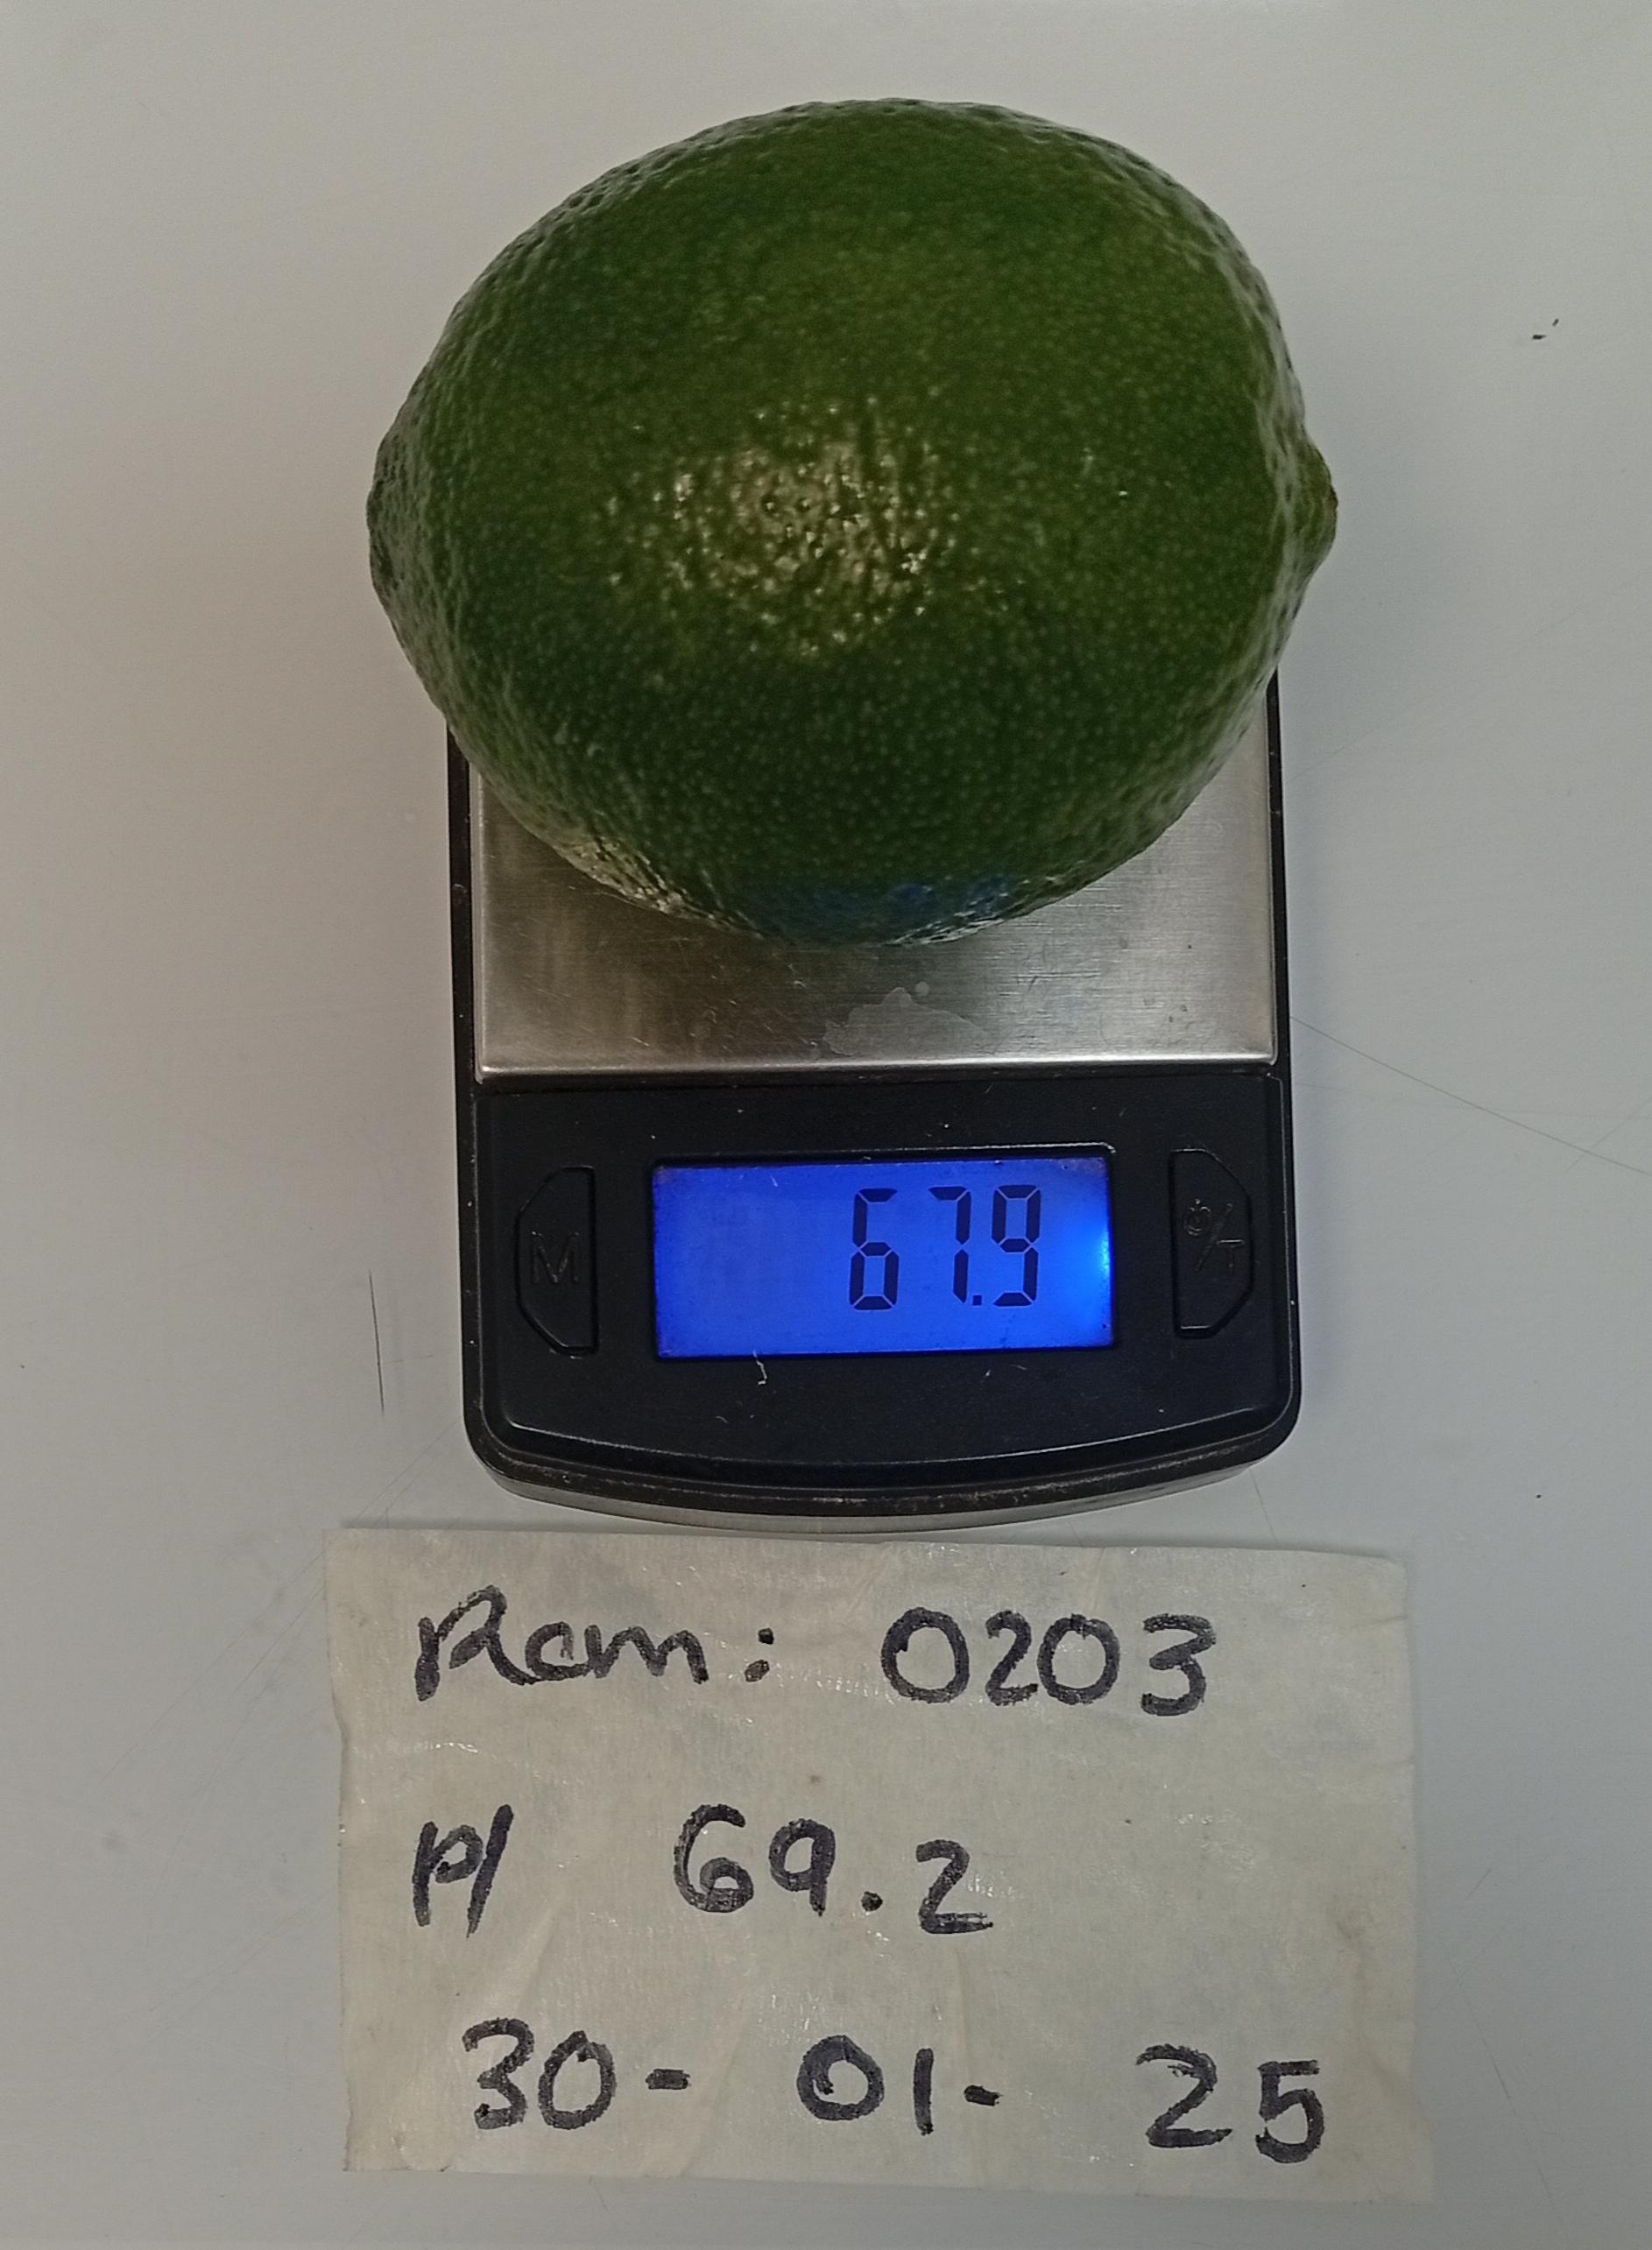 M
67.9
⏻/T
Rem: 0203
P/ 69.2
30- 01- 25